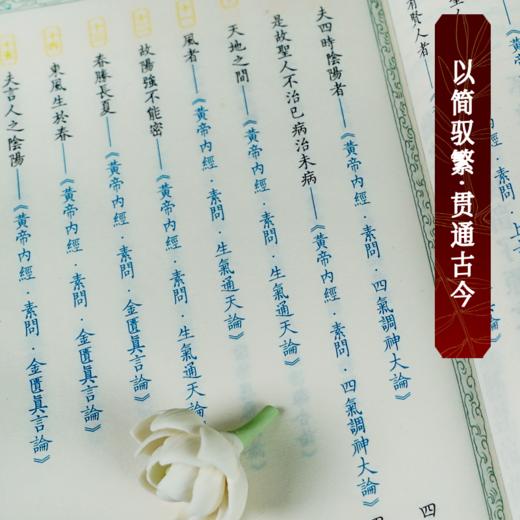 以简驭繁·贯通古今
夫四時陰陽者——《黃帝內經·素問·四氣調神大論》
是故聖人不治已病治未病——《黃帝內經·素問·四氣調神大論》
天地之間——《黃帝內經·素問·生氣通天論》
風者——《黃帝內經·素問·生氣通天論》
故陽強不能密——《黃帝內經·素問·生氣通天論》
春勝長夏——《黃帝內經·素問·金匱眞言論》
東風生於春——《黃帝內經·素問·金匱眞言論》
夫言人之陰陽——《黃帝內經·素問·金匱眞言論》
四